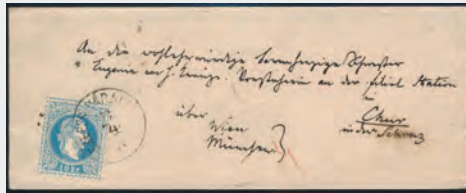 An die wohlehrwürdige barmherzige Schwester
Eugenia von h. Kreuze. Vorsteherin an der filial Station
in
Chur
in der Schweiz
über
Wien
München